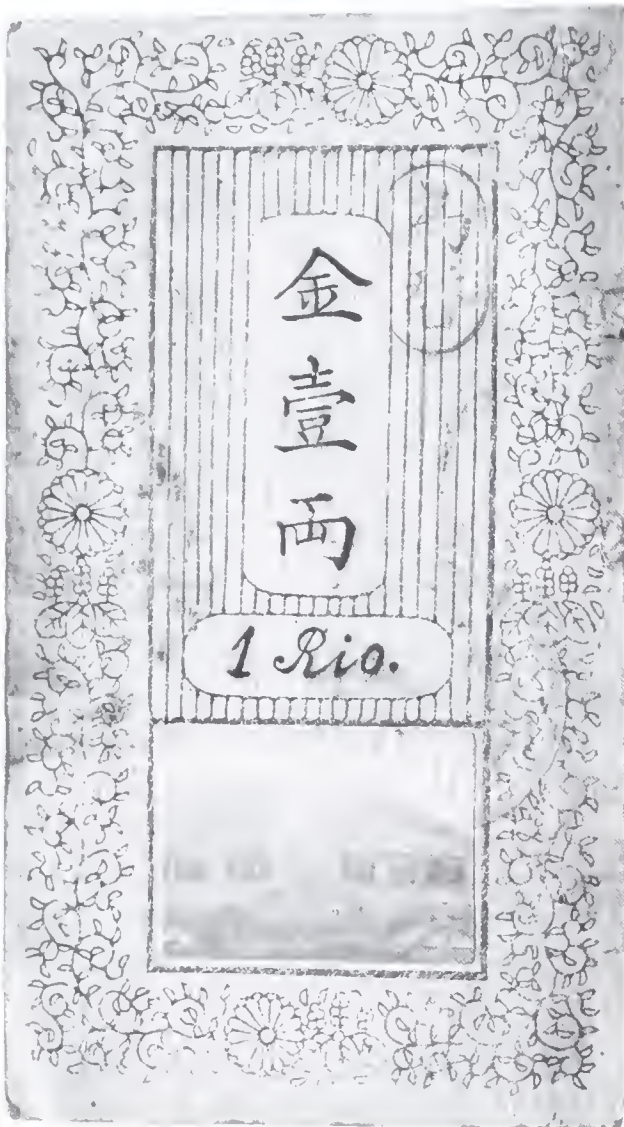 金壹両
1 Rio.